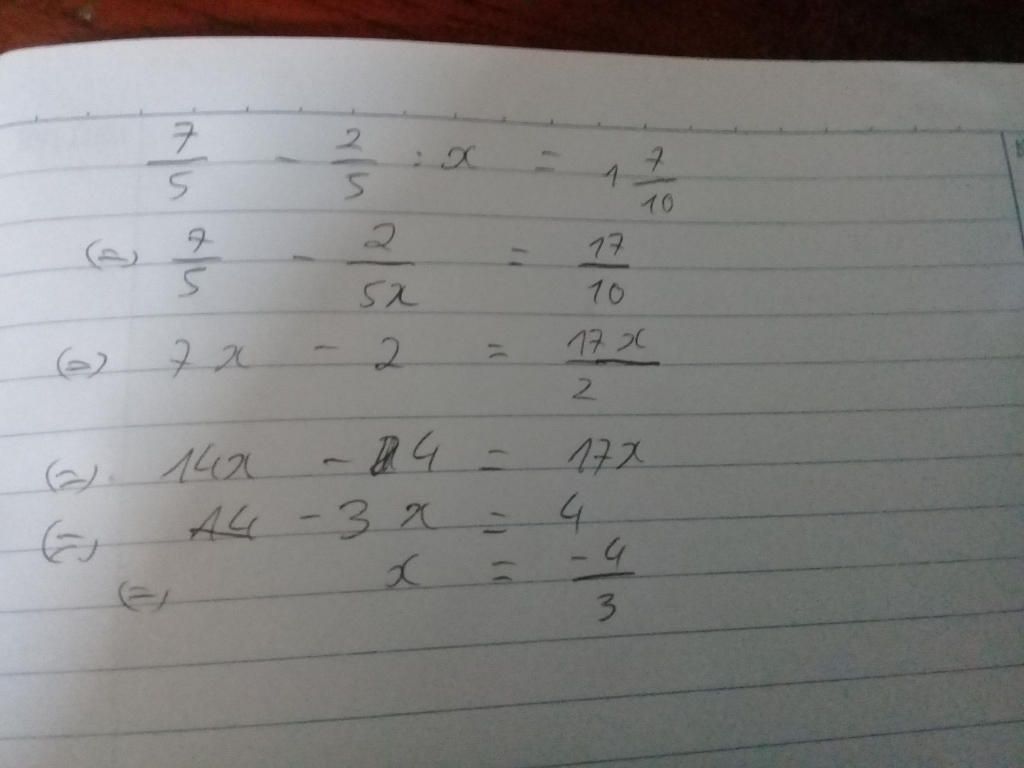 7/5 - 2/5 : x = 1 7/10
(=) 7/5 - 2/5x = 17/10
(=) 7x - 2 = 17x/2
(=) 14x - 4 = 17x
(=) - 3x = 4
(=) x = -4/3